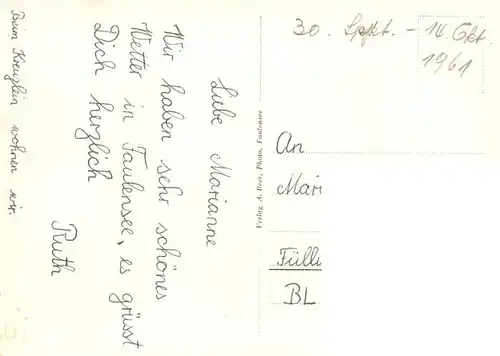 Liebe Marianne
Wir haben sehr schönes
Wetter in Faulensee, es grüsst
Dich herzlich
Ruth
Beim Kreuzlein wohnen wir.
Verlag A. Beer, Photo, Faulensee
30. Sept. - 14 Okt.
1961
An
Mari
Fülli
BL